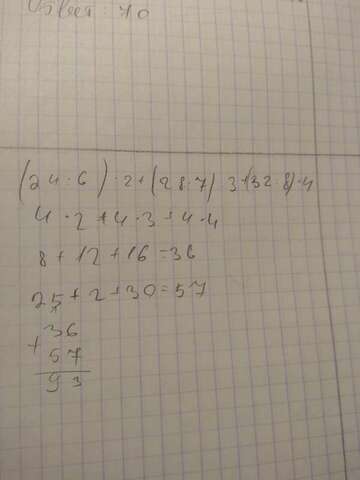 Ответ: 70
(24:6)·2+(28:7)·3+(32:8)·4
4·2+4·3+4·4
8+12+16=36
25+2+30=57
+36
57
93